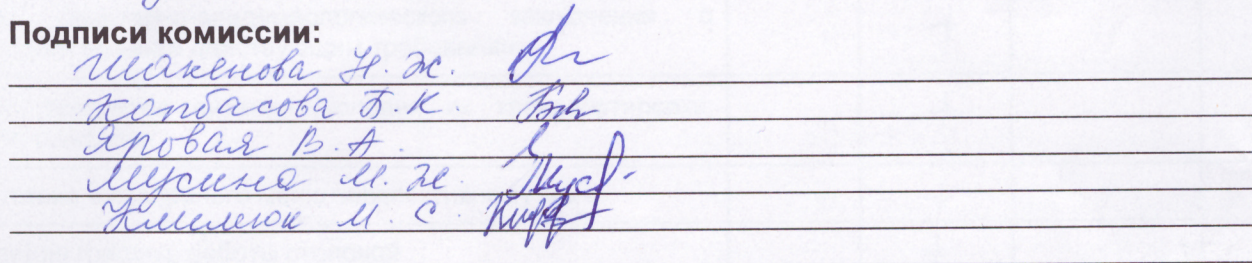 Подписи комиссии:
Шакенова Н. Ж.
Копбасова Б. К.
Яровая В. А.
Мусина М. Ж.
М. С.